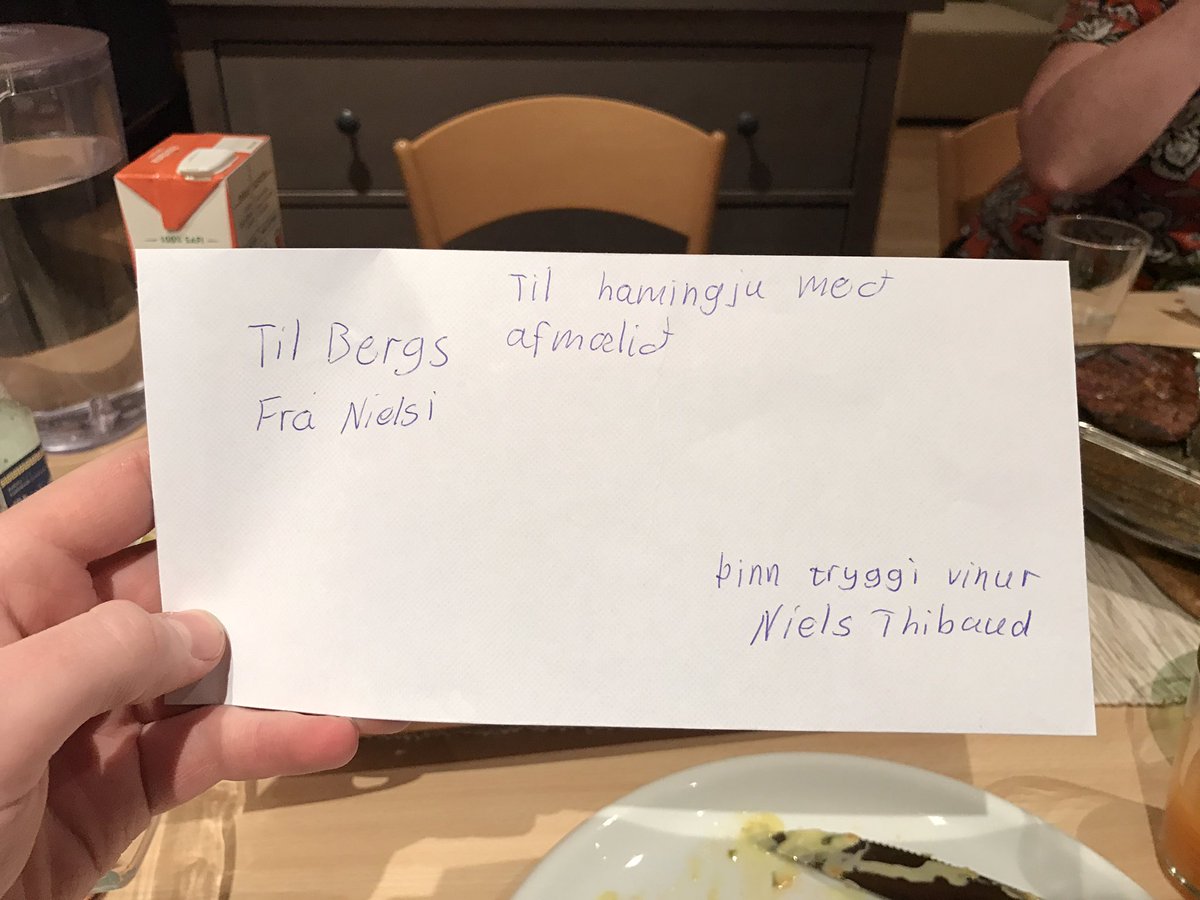 Til hamingju með
afmælið
Til Bergs
Frá Nielsi
þinn tryggi vinur
Niels Thibaud
100% SAFI